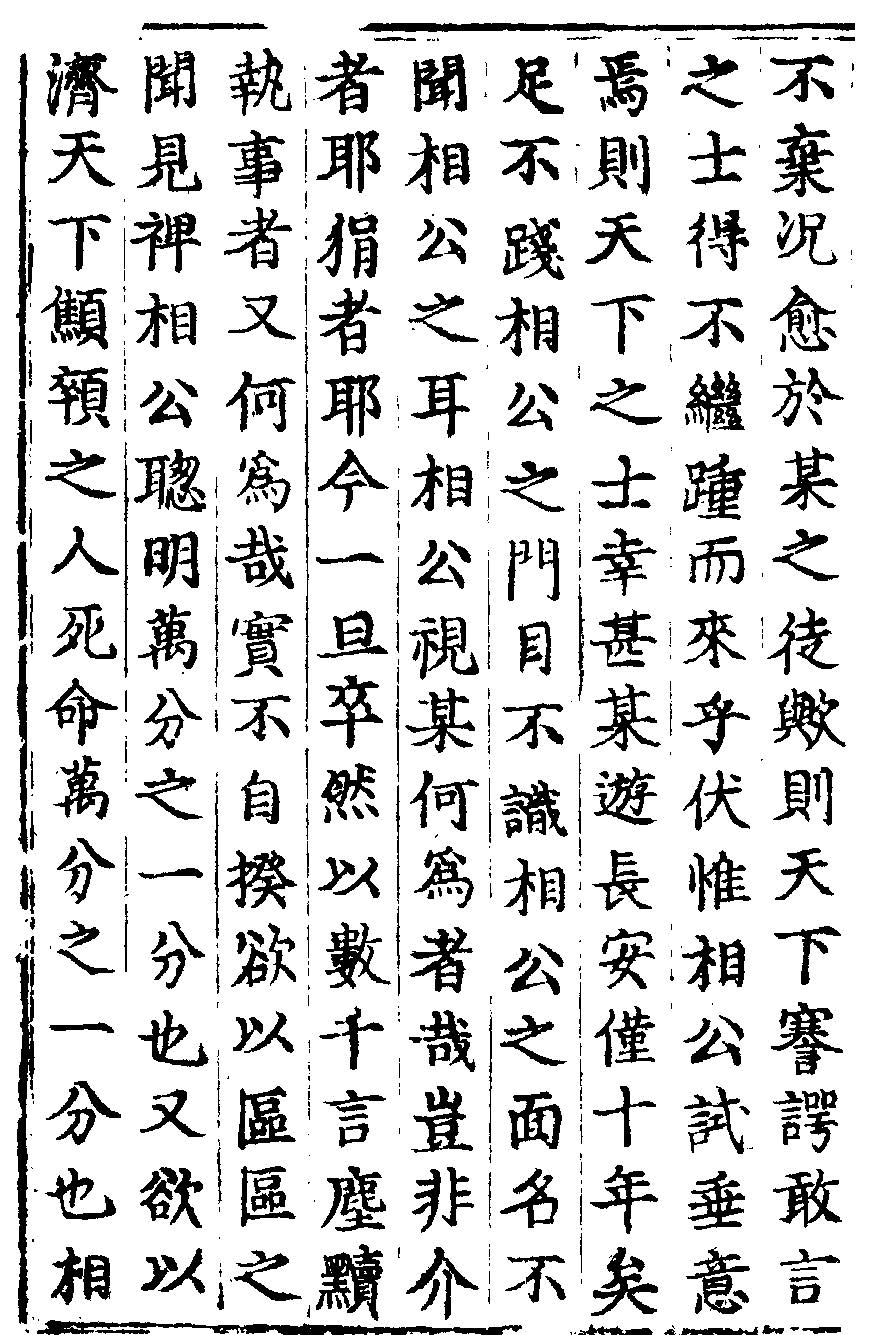 不棄况愈於某之徒歟則天下謇諤敢言
之士得不繼踵而來乎伏惟相公試垂意
焉則天下之士幸甚某遊長安僅十年矣
足不踐相公之門目不識相公之面名不
聞相公之耳相公視某何爲者哉豈非介
者耶狷者耶今一旦卒然以數千言塵黷
執事者又何爲哉實不自揆欲以區區之
聞見裨相公聰明萬分之一分也又欲以
濟天下顦顇之人死命萬分之一分也相